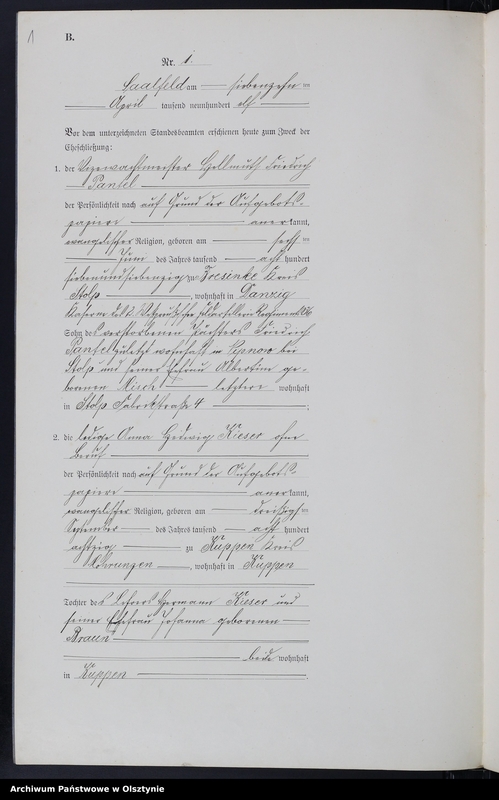 1
B.
Nr. 1.
Saalfeld am siebenzehn ten
April tausend neunhundert elf
Vor dem unterzeichneten Standesbeamten erschienen heute zum Zweck der
Eheschließung:
1. der Vizewachtmeister Hellmuth Friedrich
Pantel
der Persönlichkeit nach auf Grund der Aufgebots-
papiere anerkannt,
evangelischer Religion, geboren am sechs ten
Juni des Jahres tausend acht hundert
siebenundsiebenzig zu Kreis
Stolp, wohnhaft in Danzig
Kaserne des 2. Feldartillerie Regiments
Sohn des verstorbenen Friedrich
Pantel zuletzt wohnhaft in bei
Stolp und seiner Ehefrau Albertine ge-
borenen letztere wohnhaft
in Stolp Fabrikstraße 4;
2. die ledige Anna Hedwig Kieser ohne
Beruf
der Persönlichkeit nach auf Grund der Aufgebots-
papiere anerkannt,
evangelischer Religion, geboren am dreißigsten
September des Jahres tausend acht hundert
achtzig zu Kuppen Kreis
Mohrungen, wohnhaft in Kuppen
Tochter des Lehrers Hermann Kieser und
seiner Ehefrau Johanna geborenen
Braun
beide wohnhaft
in Kuppen.
Archiwum Państwowe w Olsztynie